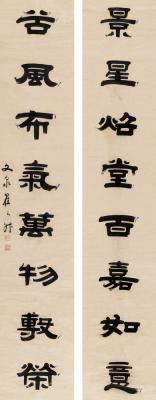 景星炤堂百嘉如意
谷風布氣萬物敷榮